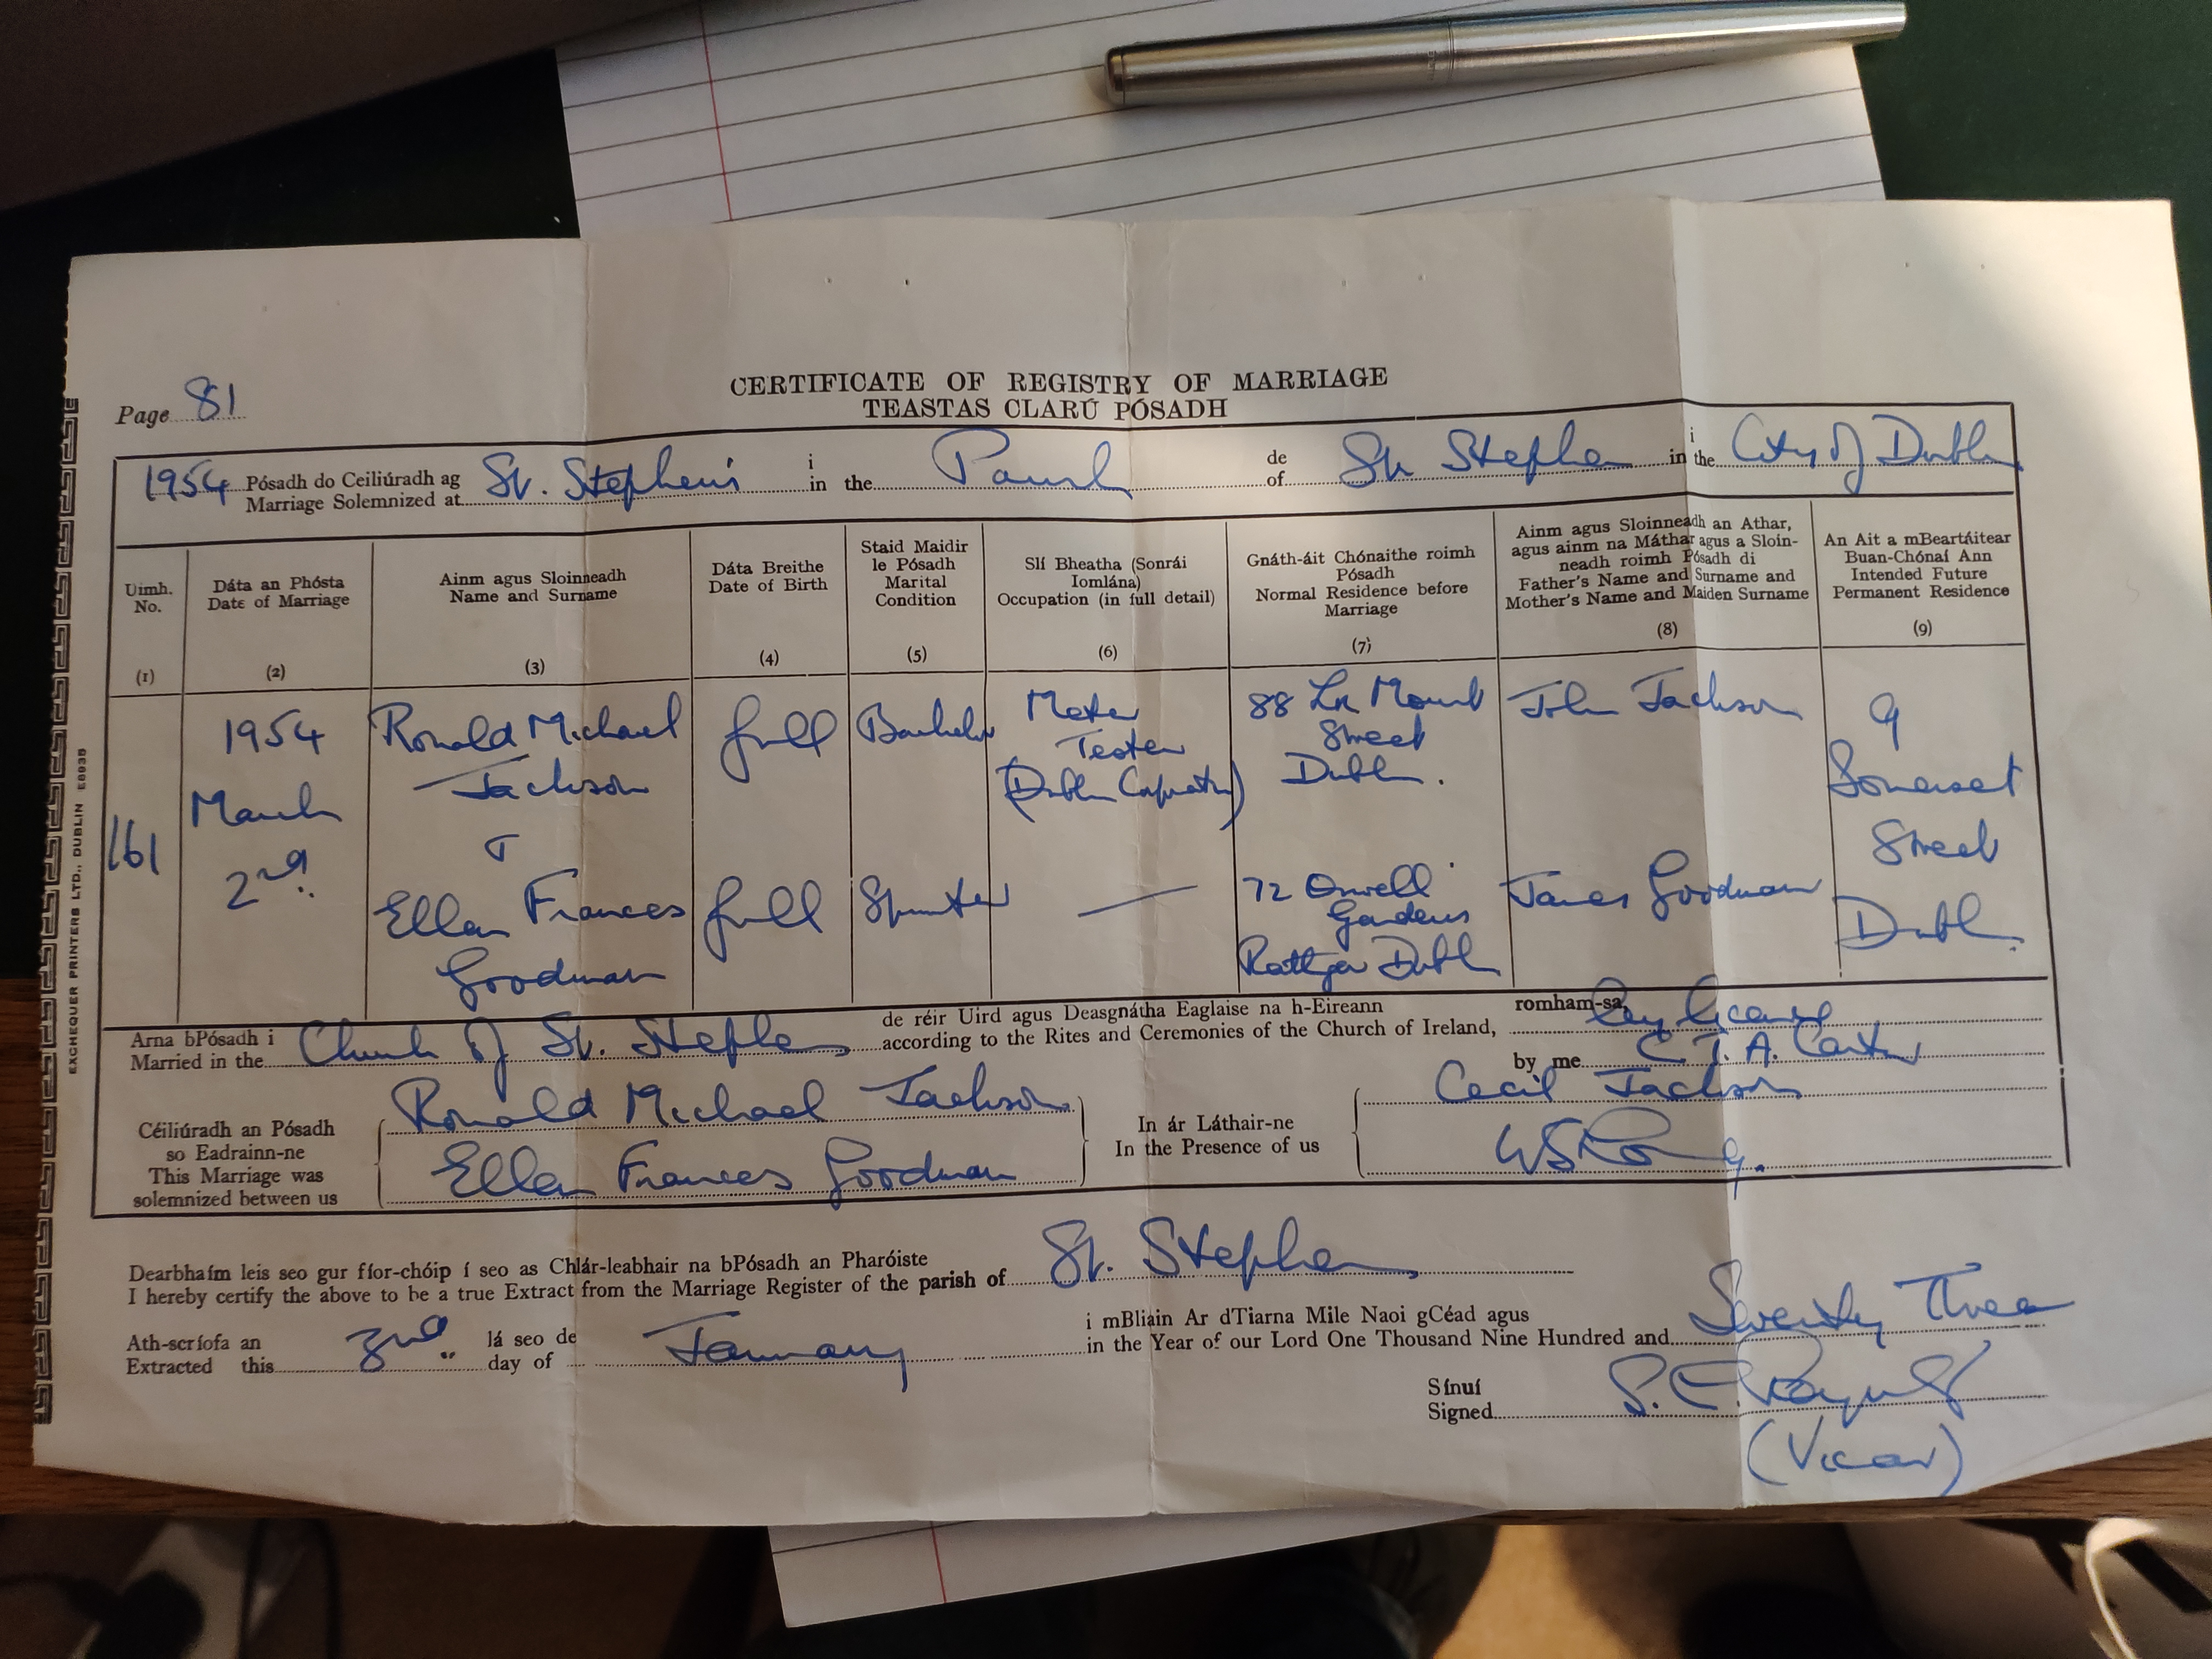 Page 81
CERTIFICATE OF REGISTRY OF MARRIAGE
TEASTAS CLARÚ PÓSADH
1954 Pósadh do Ceiliúradh ag i de i
Marriage Solemnized at St. Stephen's in the Parish of St. Stephen in the City of Dublin
Uimh.
No.
(1)
Dáta an Phósta
Date of Marriage
(2)
Ainm agus Sloinneadh
Name and Surname
(3)
Dáta Breithe
Date of Birth
(4)
Staid Maidir
le Pósadh
Marital
Condition
(5)
Slí Bheatha (Sonrái
Iomlána)
Occupation (in full detail)
(6)
Gnáth-áit Chónaithe roimh
Pósadh
Normal Residence before
Marriage
(7)
Ainm agus Sloinneadh an Athar,
agus ainm na Máthar agus a Sloin-
neadh roimh Pósadh di
Father's Name and Surname and
Mother's Name and Maiden Surname
(8)
An Ait a mBeartáitear
Buan-Chónaí Ann
Intended Future
Permanent Residence
(9)
161
1954
March
2nd.
Ronald Michael
Jackson
&
Ellen Frances
Goodman
full
full
Bachelor
Spinster
Meter
Tester
(Dublin Corporation)
—
88 Lr Mount
Street
Dublin.
72 Orwell
Gardens
Rathgar Dublin
John Jackson
James Goodman
9
Somerset
Street
Dublin.
Arna bPósadh i de réir Uird agus Deasgnátha Eaglaise na h-Eireann romham-sa
Married in the Church of St. Stephen according to the Rites and Ceremonies of the Church of Ireland,
by me C. T. A. Carter
Céiliúradh an Pósadh
so Eadrainn-ne
This Marriage was
solemnized between us
Ronald Michael Jackson
Ellen Frances Goodman
In ár Láthair-ne
In the Presence of us
Cecil Jackson
Dearbhaím leis seo gur fíor-chóip í seo as Chlár-leabhair na bPósadh an Pharóiste
I hereby certify the above to be a true Extract from the Marriage Register of the parish of St. Stephen
Ath-scríofa an lá seo de i mBliain Ar dTiarna Mile Naoi gCéad agus
Extracted this 3rd day of January in the Year of our Lord One Thousand Nine Hundred and Seventy Three
Sínuí
Signed
(Vicar)
EXCHEQUER PRINTERS LTD., DUBLIN E6935